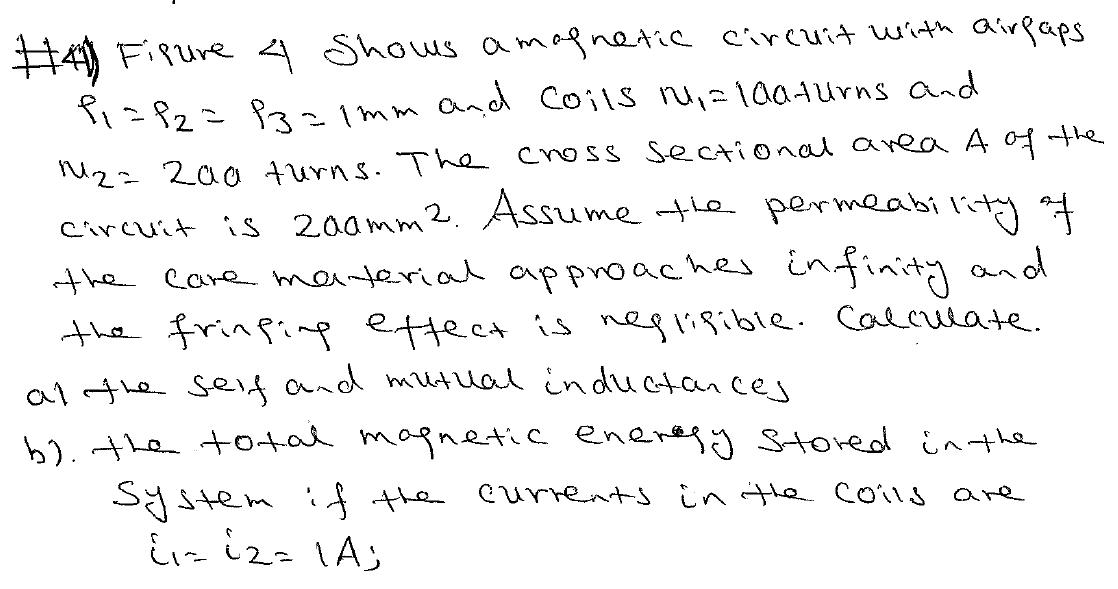 #4) Figure 4 Shows a magnetic circuit with airgaps
g1 = g2 = g3 = 1mm and Coils N1=100turns and
N2= 200 turns. The cross Sectional area A of the
circuit is 200mm2. Assume the permeability of
the core material approaches infinity and
the fringing effect is negligible. Calculate.
a) the self and mutual inductances
b). the total magnetic energy Stored in the
System if the currents in the coils are
i1= i2= 1A;